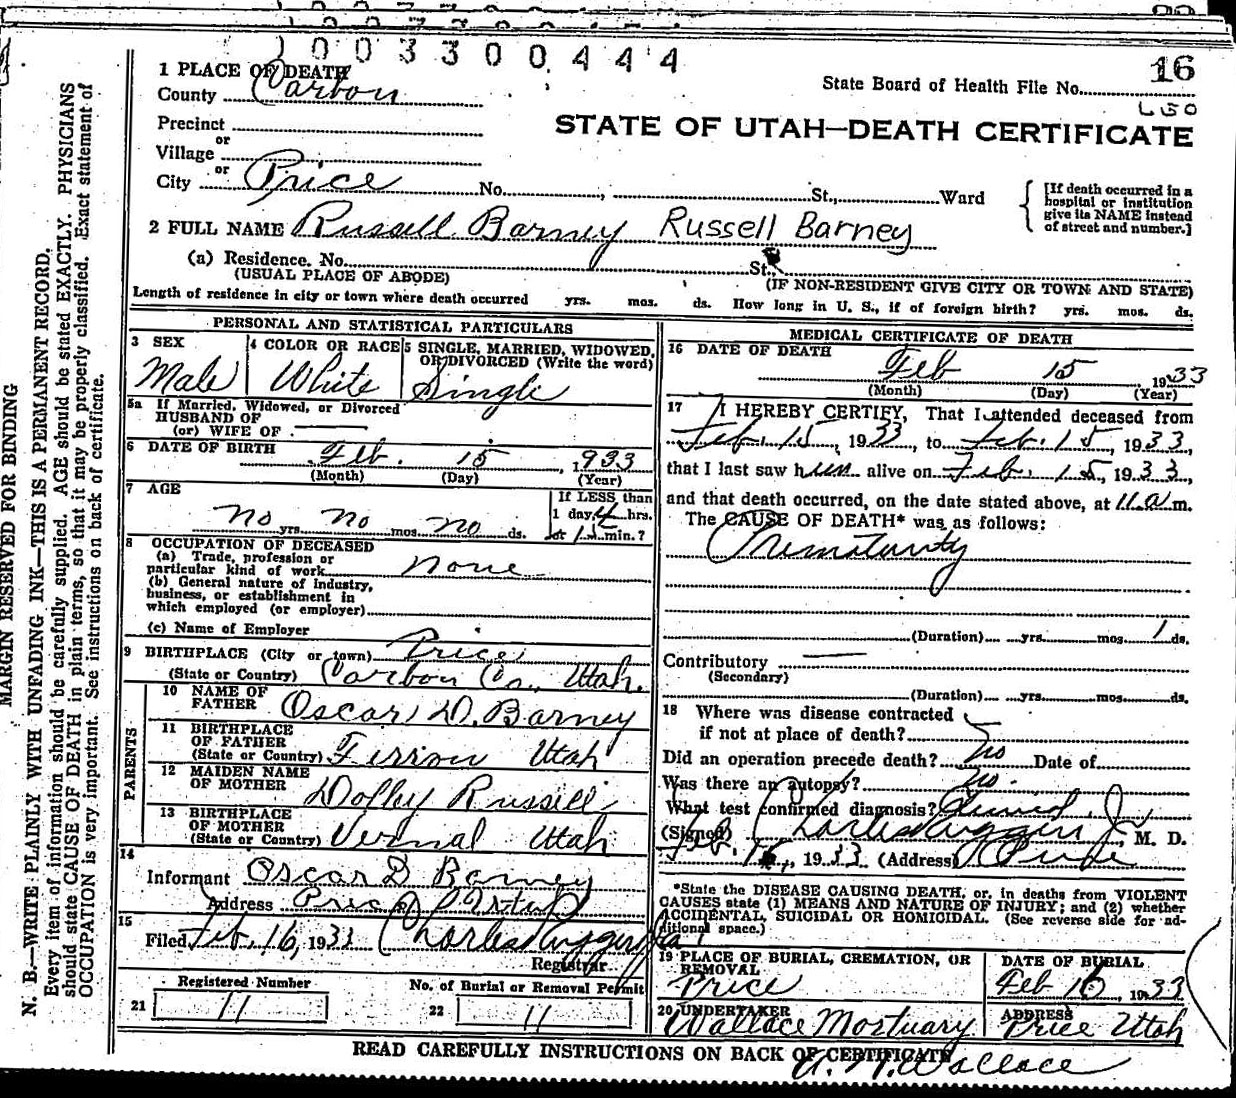 1003300444
16
State Board of Health File No.
1 PLACE OF DEATH
County Carbon
STATE OF UTAH—DEATH CERTIFICATE
Precinct
or
Village
or
City Price No. , St., Ward
[If death occurred in a hospital or institution give its NAME instead of street and number.]
2 FULL NAME Russell Barney Russell Barney
(a) Residence. No. St.,
(USUAL PLACE OF ABODE) (IF NON-RESIDENT GIVE CITY OR TOWN AND STATE)
Length of residence in city or town where death occurred yrs. mos. ds. How long in U. S., if of foreign birth? yrs. mos. ds.
PERSONAL AND STATISTICAL PARTICULARS
3 SEX 4 COLOR OR RACE 5 SINGLE, MARRIED, WIDOWED, OR DIVORCED (Write the word)
Male White Single
5a If Married, Widowed, or Divorced
HUSBAND OF
(or) WIFE OF
6 DATE OF BIRTH Feb. 15, 1933
(Month) (Day) (Year)
7 AGE If LESS than
1 day, 4 hrs.
no yrs. no mos. no ds. or min.?
8 OCCUPATION OF DECEASED
(a) Trade, profession or
particular kind of work none
(b) General nature of industry,
business, or establishment in
which employed (or employer)
(c) Name of Employer
9 BIRTHPLACE (City or town) Price
(State or Country) Carbon Co., Utah.
PARENTS
10 NAME OF
FATHER Oscar D. Barney
11 BIRTHPLACE
OF FATHER
(State or Country) Ferron Utah
12 MAIDEN NAME
OF MOTHER Dolby Russell
13 BIRTHPLACE
OF MOTHER
(State or Country) Vernal Utah
14
Informant Oscar D Barney
Address Price
15
Filed Feb. 16, 1933 Charles Ruggeri Jr
Registrar
Registered Number No. of Burial or Removal Permit
21 11 22 11
MEDICAL CERTIFICATE OF DEATH
16 DATE OF DEATH
Feb 15, 1933
(Month) (Day) (Year)
17 I HEREBY CERTIFY, That I attended deceased from
Feb. 15, 1933, to Feb. 15, 1933,
that I last saw him alive on Feb. 15, 1933,
and that death occurred, on the date stated above, at 11 a m.
The CAUSE OF DEATH* was as follows:
Prematurity
(Duration) yrs. mos. 1 ds.
Contributory
(Secondary)
(Duration) yrs. mos. ds.
18 Where was disease contracted
if not at place of death?
Did an operation precede death? no Date of
Was there an autopsy? no.
What test confirmed diagnosis? Clinical
(Signed) Charles Ruggeri Jr, M. D.
Feb. 16, 1933 (Address) Price
*State the DISEASE CAUSING DEATH, or, in deaths from VIOLENT
CAUSES state (1) MEANS AND NATURE OF INJURY; and (2) whether
ACCIDENTAL, SUICIDAL OR HOMICIDAL. (See reverse side for ad-
ditional space.)
19 PLACE OF BURIAL, CREMATION, OR REMOVAL DATE OF BURIAL
Price Feb 16, 1933
20 UNDERTAKER ADDRESS
Wallace Mortuary Price Utah
READ CAREFULLY INSTRUCTIONS ON BACK OF CERTIFICATE
Wallace
MARGIN RESERVED FOR BINDING
N. B.—WRITE PLAINLY WITH UNFADING INK—THIS IS A PERMANENT RECORD.
Every item of information should be carefully supplied. AGE should be stated EXACTLY. PHYSICIANS
should state CAUSE OF DEATH in plain terms, so that it may be properly classified. Exact statement of
OCCUPATION is very important. See instructions on back of certificate.